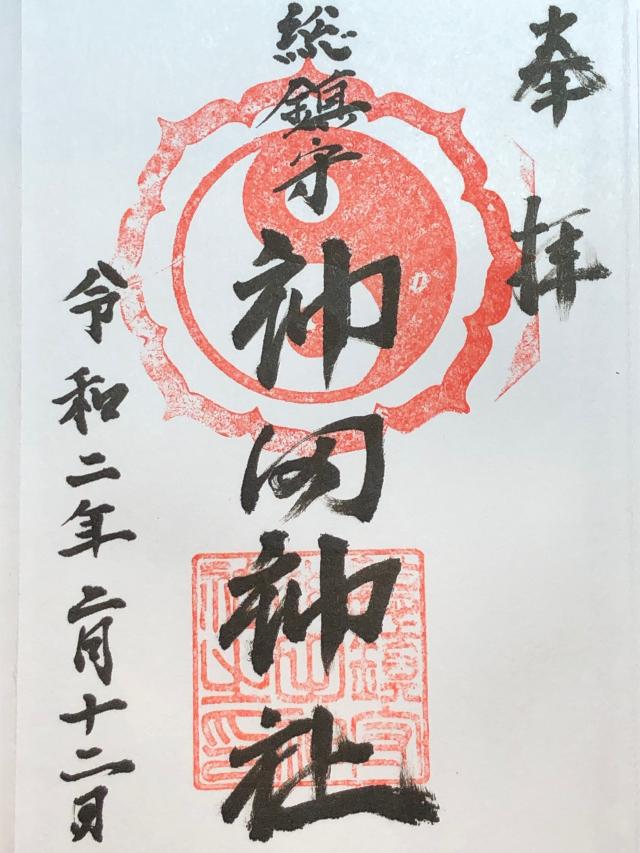 奉拝
総鎮守
神田神社
令和二年二月十二日